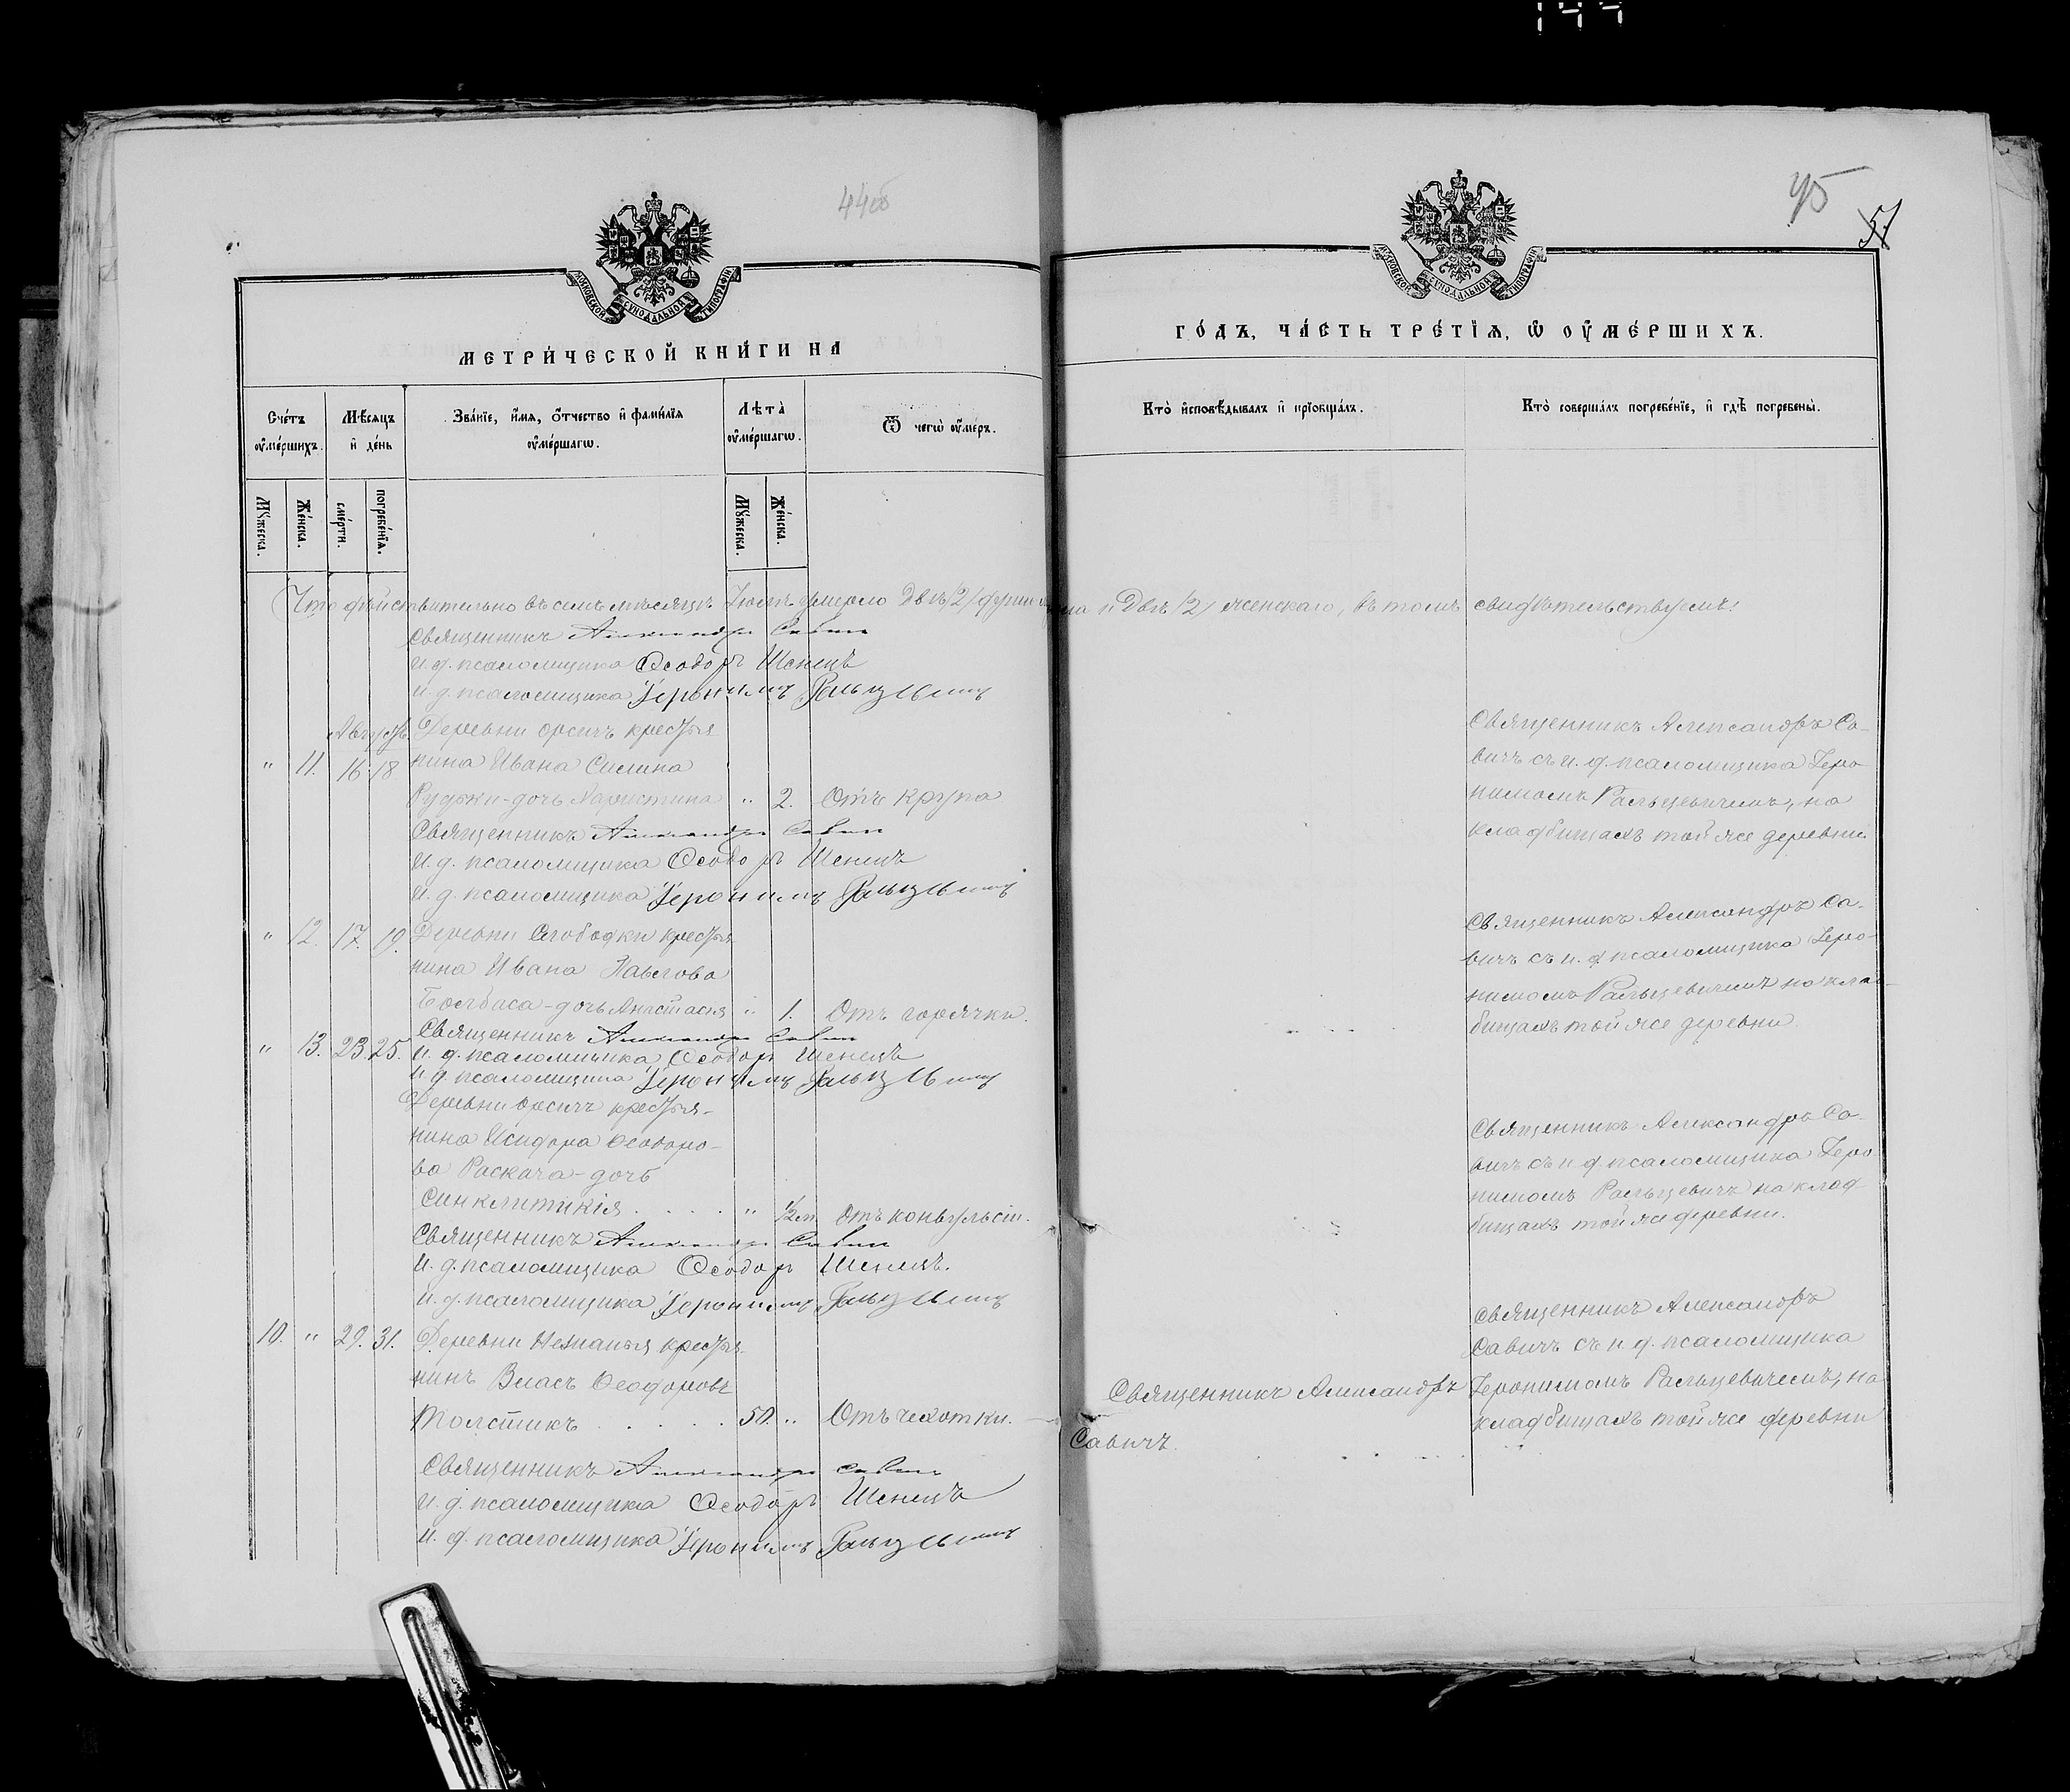 44об
МОСКОВСКОЙ СѴНОДАЛЬНОЙ ТИПОГРАФІИ
МЕТРИ́ЧЕСКОЙ КНИ́ГИ НА
Сче́тъ ᲂу҆ме́ршихъ.
Мѣ́сяцъ и҆ де́нь
Зва́нїе, и҆́мя, ѻ҆́тчество и҆ фами́лїя ᲂу҆ме́ршагѡ.
Лѣта̀ ᲂу҆ме́ршагѡ.
Ѿ чегѡ̀ ᲂу҆́меръ.
Мꙋ́жеска.
Же́нска.
сме́рти.
погребе́нїя.
Мꙋ́жеска.
Же́нска.
Что действительно въ семъ месяце Іюле умерло Двѣ /2/ душъ
Священникъ Александръ Савичъ
И. д. псаломщика Ѳеодоръ Шенецъ
И. д. псаломщика Іеронимъ Ральцевичъ
Августъ Деревни Орсичъ крестья-
" 11. 16. 18. нина Ивана Силина
Рудьки - дочь Харистина " 2. Отъ крупа
Священникъ Александръ Савичъ
И. д. псаломщика Ѳеодоръ Шенецъ
И. д. псаломщика Іеронимъ Ральцевичъ
" 12. 17. 19. Деревни Слободки крестья-
нина Ивана Павлова
Болбаса - дочь Анастасія " 1. Отъ горячки.
Священникъ Александръ Савичъ
" 13. 23. 25. И. д. псаломщика Ѳеодоръ Шенецъ
И. д. псаломщика Іеронимъ Ральцевичъ
Деревни Орсичъ крестья-
нина Исидора Ѳеодоро-
ва Раскача - дочь
Синклитикія . . . . " 1/2 м. Отъ конвульсіи.
Священникъ Александръ Савичъ
И. д. псаломщика Ѳеодоръ Шенецъ.
И. д. псаломщика Іеронимъ Ральцевичъ
10. " 29. 31. Деревни крестья-
нинъ Власъ Ѳеодоровъ
Толстикъ . . . . . 50. " Отъ чахотки.
Священникъ Александръ Савичъ
И. д. псаломщика Ѳеодоръ Шенецъ
И. д. псаломщика Іеронимъ Ральцевичъ
45
51
МОСКОВСКОЙ СѴНОДАЛЬНОЙ ТИПОГРАФІИ
ГО́ДЪ, ЧА́СТЬ ТРЕ́ТЇЯ, Ѡ҆ ОУ҆МЕ́РШИХЪ.
Кто̀ и҆сповѣ́дывалъ и҆ прїобща́лъ.
Кто̀ соверша́лъ погребе́нїе, и҆ гдѣ̀ погребены̀.
и Двѣ /2/ женскаго, въ томъ свидѣтельствуемъ:
Священникъ Александръ Са-
вичъ съ и. д. псаломщика Іеро-
нимомъ Ральцевичемъ, на
кладбищахъ той же деревни.
Священникъ Александръ Са-
вичъ съ и. д. псаломщика Іеро-
нимомъ Ральцевичемъ на клад-
бищахъ той же деревни
Священникъ Александръ Са-
вичъ съ и. д. псаломщика Іеро
нимомъ Ральцевичъ на клад
бищахъ той же деревни.
Священникъ Александръ
Савичъ съ и. д. псаломщика
Священникъ Александръ Іеронимомъ Ральцевичемъ, на
Савичъ. кладбищахъ той же деревни